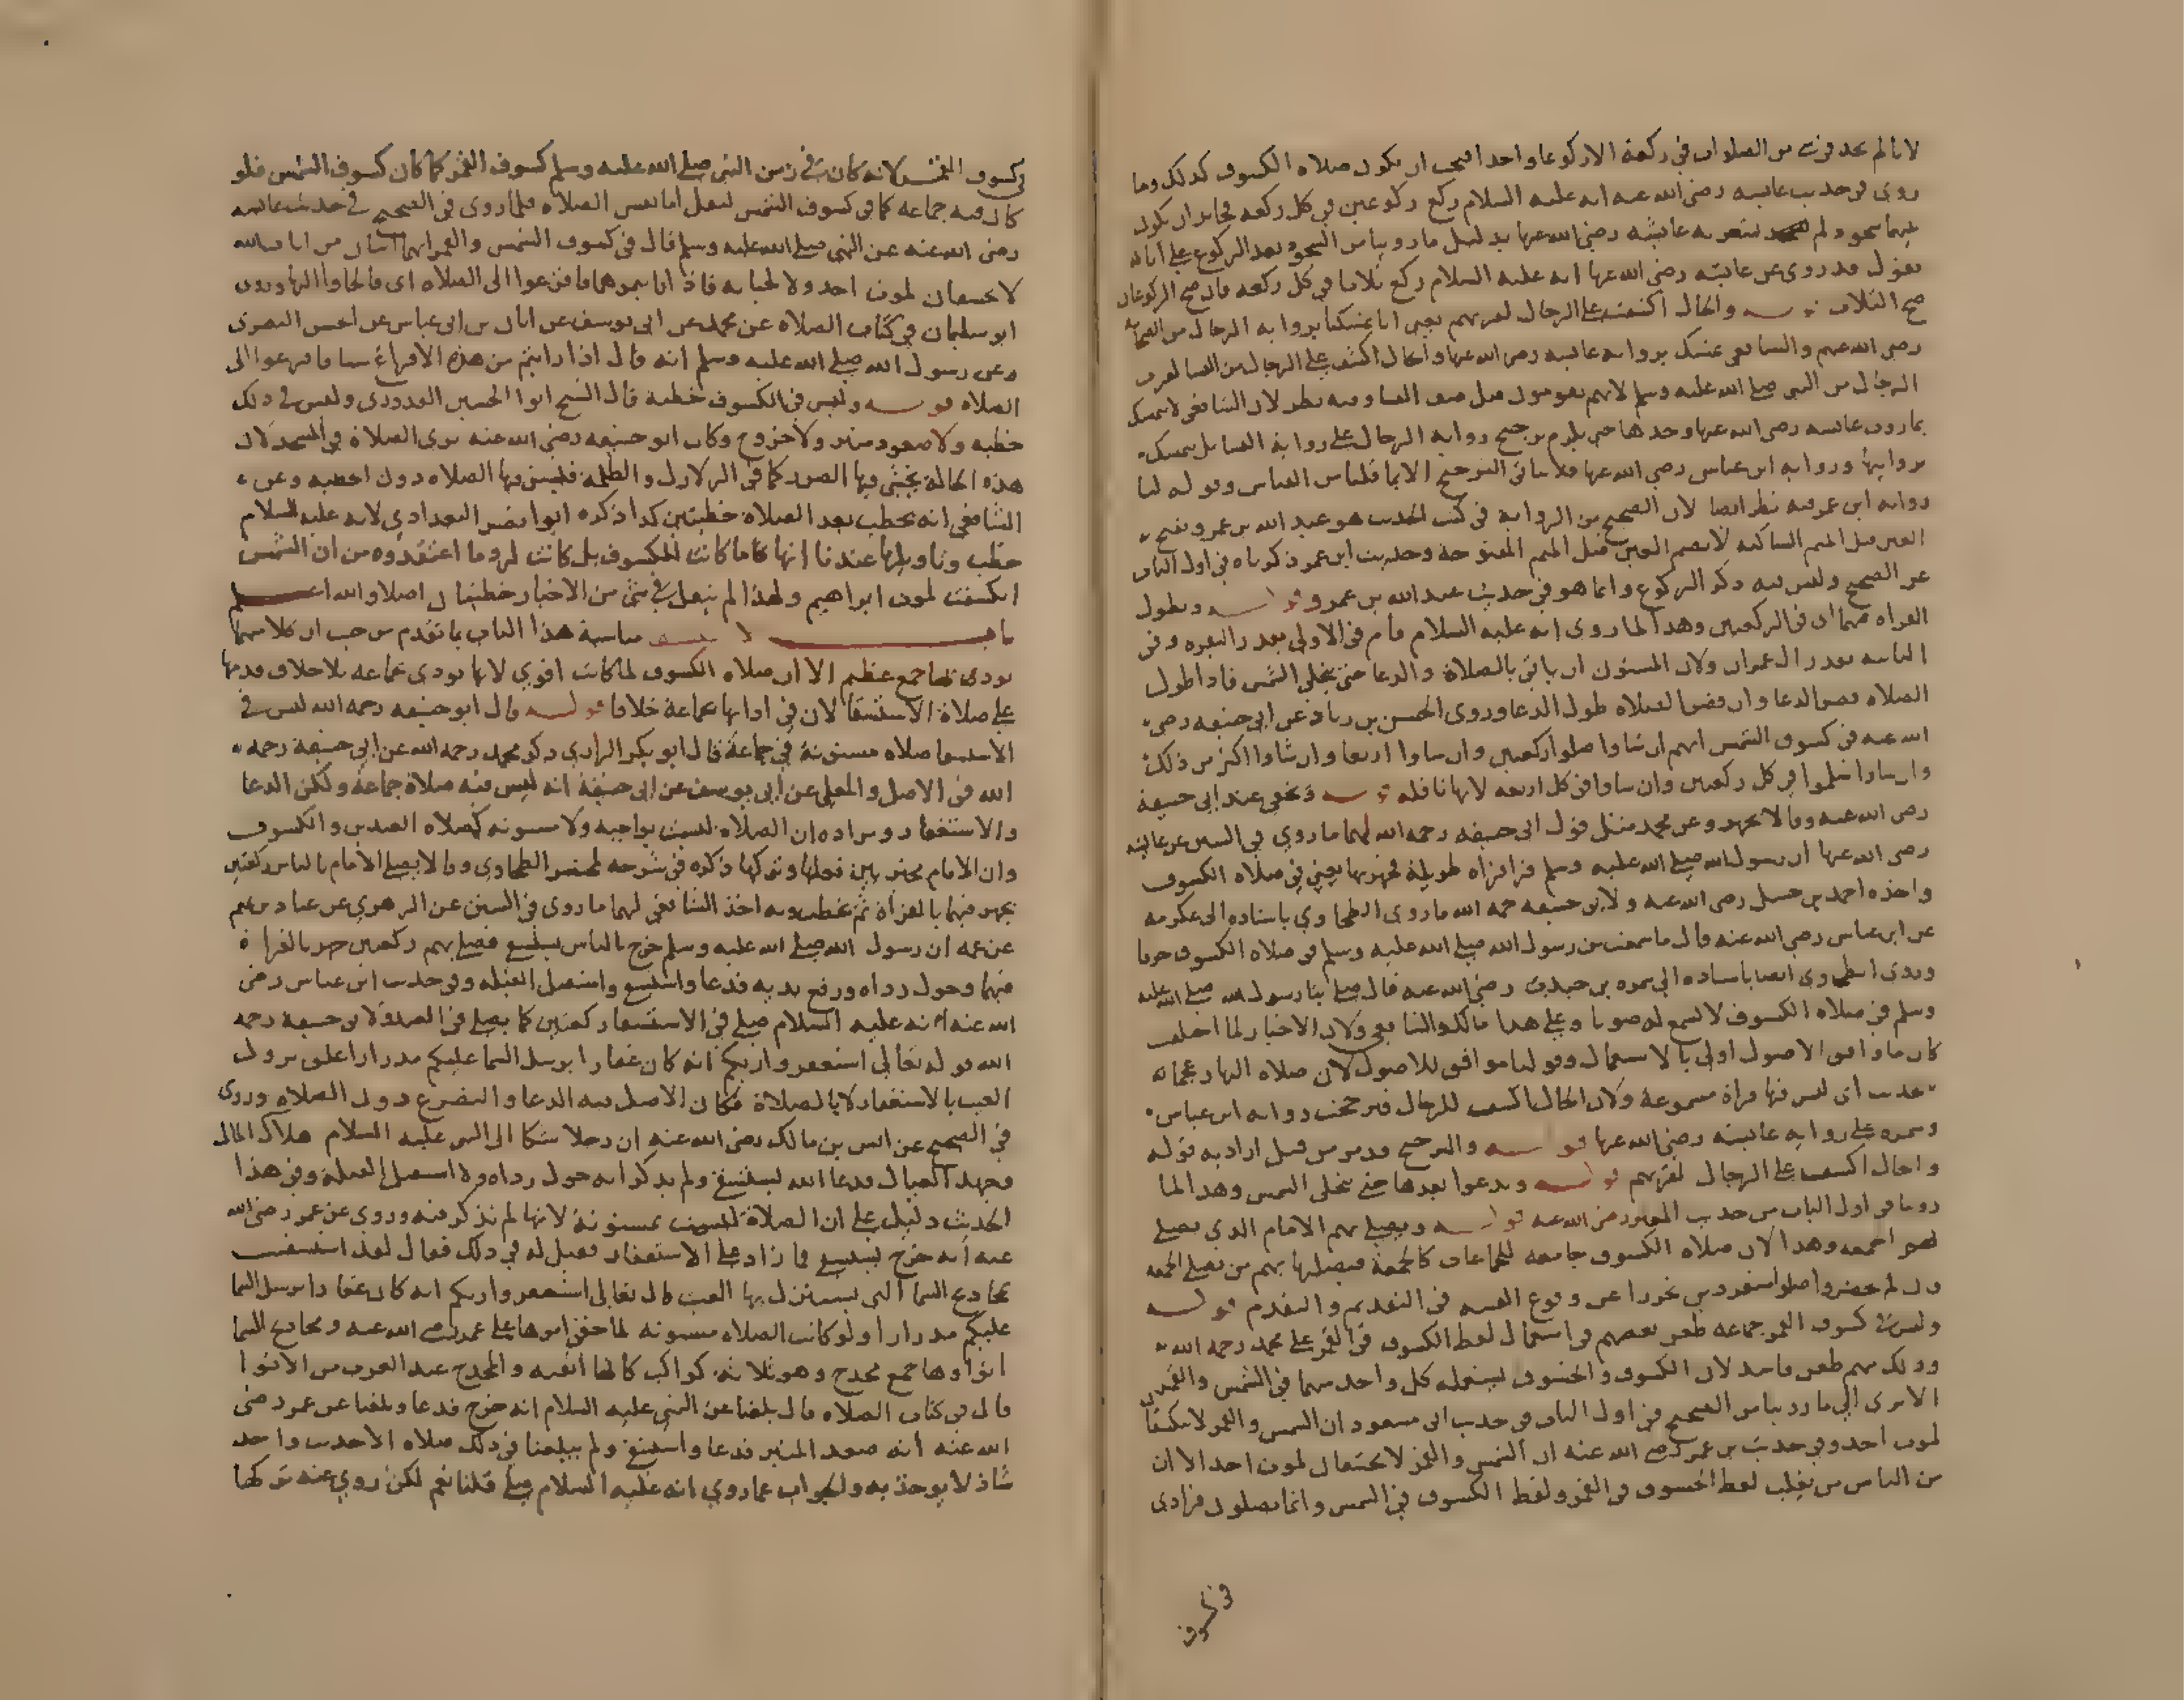 لانا لم نجد فرضا من الصلوات في ركعة الا ركوعا واحدا فيجب ان يكون صلاه الكسوف كذلك وما
روى في حديث عايشه رضي الله عنها انه عليه السلام ركع ركوعين في كل ركعه فجايز ان يكون
بينهما سجود ولم تشعر به عايشه رضي الله عنها بدليل ما روينا من السجود بعد الركوع على انا
نقول قد روى عن عايشه رضي الله عنها انه عليه السلام ركع ثلاثا في كل ركعه فان صح الركوعان
صح الثلاث قوله والحال اكشف على الرجال لقربهم يعني انا تمسكنا برواية الرجال من الصحابه
رضي الله عنهم والشافعي تمسك بروايه عايشه رضي الله عنها والحال اكشف على الرجال من النسا لقرب
الرجال من النبي صلى الله عليه وسلم لانهم يقومون قبل صف النسا وفيه نظر لان الشافعي لا يتمسك
بما روت عايشه رضي الله عنها وحدها حتى يلزم ترجيح روايه الرجال على رواية النسا بل يتمسك
بروايتها وروايه ابن عباس رضي الله عنها فلا يتاتى الترجيح الا بما قلنا من القياس وقوله لنا
روايه ابن عمر فيه نظر ايضا لان الصحيح من الروايه في كتب الحديث هو عبد الله بن عمرو بفتح
العين قبل الميم الساكنه لا بضم العين قبل الميم المفتوحة وحديث ابن عمر ذكرناه في اول الباب
عن الصحيح وليس فيه ذكر الركوع وانما هو في حديث عبد الله بن عمرو قوله ويطول
القراه فيهما اي في الركعتين وهذا لما روى انه عليه السلام قام في الاولى بقدر البقره وفي
الثانيه بقدر ال عمران ولان المسنون ان ياتي بالصلاة والدعا حتى تنجلي الشمس فاذا طول
الصلاه قصر الدعا وان قصر الصلاه طول الدعا وروى الحسن بن زياد عن ابي حنيفه رضي
الله عنه في كسوف الشمس انهم ان شاوا صلوا ركعتين وان شاوا اربعا وان شاوا اكثر من ذلك
وان شاوا سلموا في كل ركعتين وان شاوا في كل اربعه لانها نافله قوله ويخفي عند ابي حنيفة
رضي الله عنه وقالا يجهر وعن محمد مثل قول ابي حنيفه رحمه الله لهما ما روي في السنن عن عايشه
رضي الله عنها ان رسول الله صلى الله عليه وسلم قرا قراه طويلة فجهر بها يعني في صلاه الكسوف
واخذه احمد بن حنبل رضي الله عنه ولابي حنيفه رحمه الله ما روى الطحاوي باسناده الى عكرمه
عن ابن عباس رضي الله عنه قال ما سمعت من رسول الله صلى الله عليه وسلم في صلاه الكسوف حرفا
وروى الطحاوي ايضا باسناده الى سمره بن جندب رضي الله عنه قال صلى بنا رسول الله صلى الله عليه
وسلم في صلاه الكسوف لا نسمع له صوتا وعلى هذا مالك والشافعي ولان الاخبار لما اختلف
كان ما وافق الاصول اولى بالاستعمال وقولنا موافق للاصول لان صلاه النهار عجما
حديث اي ليس فيها قراة مسموعة ولان الحال اكشف للرجال فترجحت روايه ابن عباس
وسمره على روايه عايشه رضي الله عنها قوله والترجيح قد مر من قبل اراد به قوله
والحال اكشف على الرجال لقربهم قوله ويدعوا بعدها حتى تنجلي الشمس وهذا لما
روينا في اول الباب من حديث المغيره رضي الله عنه قوله ويصلي بهم الامام الذي يصلي
بهم الجمعه وهذا لان صلاه الكسوف جامعه للجماعات كالجمعة فيصليها بهم من يصلي الجمعه
وان لم يحضر واصلوا منفردين تحرزا عن وقوع الفتنه في التقديم والتقدم قوله
وليس في كسوف القمر جماعه طعن بعضهم في استعمال لفظ الكسوف في القمر على محمد رحمه الله
وذلك منهم طعن فاسد لان الكسوف والخسوف يستعمله كل واحد منهما في الشمس والقمر
الا ترى الى ما روينا من الصحيح في اول الباب في حديث ابي مسعود ان الشمس والقمر لا ينكسفان
لموت احد وفي حديث بن عمر رضي الله عنه ان الشمس والقمر لا يخسفان لموت احد الا ان
من الناس من يغلب لفظ الخسوف في القمر ولفظ الكسوف في الشمس وانما يصلون فرادى
في كسوف
في كسوف القمر لانه كان في زمن النبي صلى الله عليه وسلم كسوف القمر كما كان كسوف الشمس فلو
كان فيه جماعه كما في كسوف الشمس لنقل اما نفس الصلاه فلما روى في الصحيح في حديث عايشه
رضي الله عنه عن النبي صلى الله عليه وسلم قال في كسوف الشمس والقمر انهما ايتان من ايات الله
لا يخسفان لموت احد ولا لحياته فاذا رايتموهما فافزعوا الى الصلاه اي فالجاوا اليها وروى
ابو سليمان في كتاب الصلاه عن محمد عن ابي يوسف عن ابان بن ابي عياش عن الحسن البصري
وعن رسول الله صلى الله عليه وسلم انه قال اذا رايتم من هذه الافزاع شيا فافزعوا الى
الصلاه قوله وليس في الكسوف خطبة قال الشيخ ابوا الحسين القدوري وليس في ذلك
خطبه ولا صعود منبر ولا خروج وكان ابو حنيفه رضي الله عنه يرى الصلاة في المسجد لان
هذه الحالة يخشى فيها الضرر كما في الزلازل والظلمه فليس فيها الصلاه دون الخطبه وعن
الشافعي انه يخطب بعد الصلاه خطبتين كذا ذكره ابوا نصر البغدادي لانه عليه السلام
خطب وتاويلها عندنا انها كاما كانت للكسوف بل كانت لرد ما اعتقدوه من ان الشمس
انكسفت لموت ابراهيم ولهذا لم ينقل في شي من الاخبار خطبتان اصلا والله اعلم
باب الاستسقا مناسبة هذا الباب بما تقدم من حيث ان كلا منهما
يودى بجمع عظيم الا ان صلاه الكسوف لما كانت اقوي لانها تودى بجماعه بلا خلاف قدمها
على صلاة الاستسقا لان في ادايها بجماعة خلافا قوله قال ابو حنيفه رحمه الله ليس في
الاستسقا صلاه مسنونة في جماعة قال ابو بكر الرازي ذكر محمد رحمه الله عن ابي حنيفة رحمه
الله في الاصل والمعلى عن ابي يوسف عن ابي حنيفة انه ليس فيه صلاة جماعة ولكن الدعا
والاستغفار ومراده ان الصلاه ليست بواجبه ولا مسنونه كصلاه العيدين والكسوف
وان الامام مخير بين فعلها وتركها ذكره في شرحه لمختصر الطحاوي وقالا يصلي الامام بالناس ركعتين
يجهر فيهما بالقراة ثم يخطب وبه اخذ الشافعي لهما ما روى في السنن عن الزهري عن عباد بن تميم
عن عمه ان رسول الله صلى الله عليه وسلم خرج بالناس يستسقي فصلى بهم ركعتين جهر بالقراة
فيهما وحول رداه ورفع يديه فدعا واستسقى واستقبل القبله وفي حديث ابن عباس رضي
الله عنه انه عليه السلام صلى في الاستسقا ركعتين كما يصلي في العيد ولابي حنيفة رحمه
الله قوله تعالى استغفروا ربكم انه كان غفارا يرسل السما عليكم مدرارا علق نزول
الغيث بالاستغفار لا بالصلاة فكان الاصل فيه الدعا والتضرع دون الصلاه وروى
في الصحيح عن انس بن مالك رضي الله عنه ان رجلا شكا الى النبي عليه السلام هلاك المال
وجهد العيال فدعا الله ليستسقى ولم يذكر انه حول رداه ولا استقبل القبلة وفي هذا
الحديث دليل على ان الصلاة ليست بمسنونة لانها لم تذكر فيه وروى عن عمر رضي الله
عنه انه خرج ليستسقي فما زاد على الاستغفار فقيل له في ذلك فقال لقد استسقيت
بمجاديح السما التي يستنزل بها الغيث قال تعالى استغفروا ربكم انه كان غفارا يرسل السما
عليكم مدرارا ولو كانت الصلاه مسنونه لما خفي امرها على عمر رضي الله عنه ومجاديح السما
انواوها جمع مجدح وهو ثلاثة كواكب كانها اثفيه والمجدح عند العرب من الانوا
قال في كتاب الصلاه قال بلغنا عن النبي عليه السلام انه خرج فدعا وبلغنا عن عمر رضي
الله عنه انه صعد المنبر فدعا واستسقى ولم يبلغنا في ذلك صلاه الا حديث واحد
شاذ لا يوخذ به والجواب عما روي انه عليه السلام صلى قلنا نعم لكن روي عنه تركها